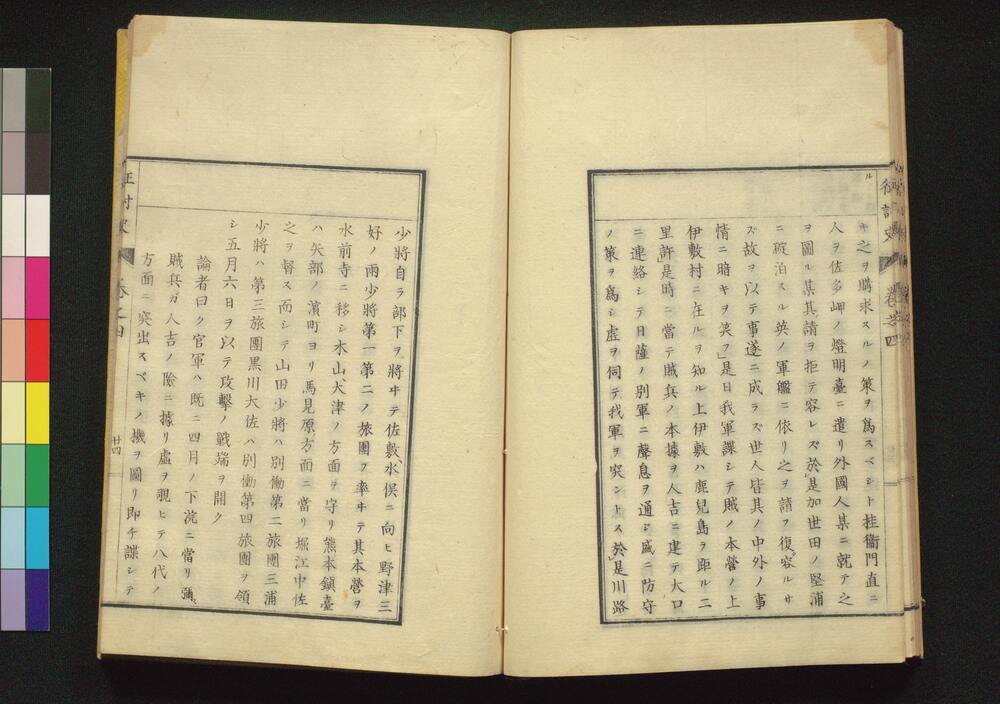 キ之ヲ購求スルノ策ヲ爲スベシト桂衞門直ニ
人ヲ佐多岬ノ燈明臺ニ遣リ外國人某ニ就テ之
ヲ圖ル某其請ヲ拒テ容レズ於是加世田ノ堅浦
ニ碇泊スル英ノ軍艦ニ依リ之ヲ請フ復容ルサ
ズ故ヲ以テ事遂ニ成ラズ世人皆其ノ中外ノ事
情ニ暗キヲ笑フ是日我軍諜シテ賊ノ本營ノ上
伊敷村ニ在ルヲ知ル上伊敷ハ鹿兒島ヲ距ル二
里許是時ニ當テ賊兵ノ本據ヲ人吉ニ建テ大口
ニ連絡シテ日薩ノ別軍ニ聲息ヲ通シ盛ニ防守
ノ策ヲ爲シ虛ヲ伺テ我軍ヲ突ントス於是川路
少將自ラ部下ヲ將ヰテ佐敷水俣ニ向ヒ野津三
好ノ兩少將第一第二ノ旅團ヲ率ヰテ其本營ヲ
水前寺ニ移シ木山大津ノ方面ヲ守リ熊本鎭臺
ハ矢部ノ濱町ヨリ馬見原方面ニ當リ堀江中佐
之ヲ督ス而シテ山田少將ハ別働第二旅團三浦
少將ハ第三旅團黒川大佐ハ別働第四旅團ヲ領
シ五月六日ヲ以テ攻擊ノ戰端ヲ開ク
論者曰ク官軍ハ既ニ四月ノ下浣ニ當リ彌
賊兵ガ人吉ノ險ニ據リ虛ヲ覗ヒテ八代ノ
方面ニ突出スベキノ機ヲ圖リ即チ諜シテ
征討史 卷之四
廿四